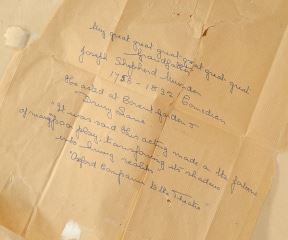 My great great great great great great
Grandfather
Joseph Shepherd Munden
1758 - 1832
Comedian
He acted at Covent Garden &
Drury Lane
"It was said his acting made on the
of play, transforming its shadows
into living reality"
"Oxford Companion to the Theatre"